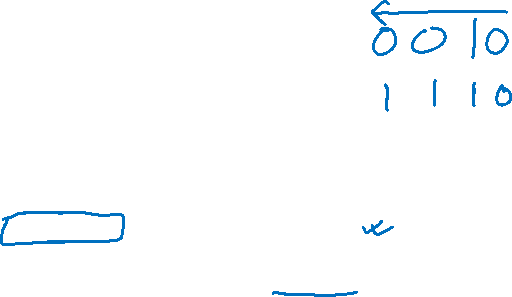 0 0 1 0
1 1 1 0